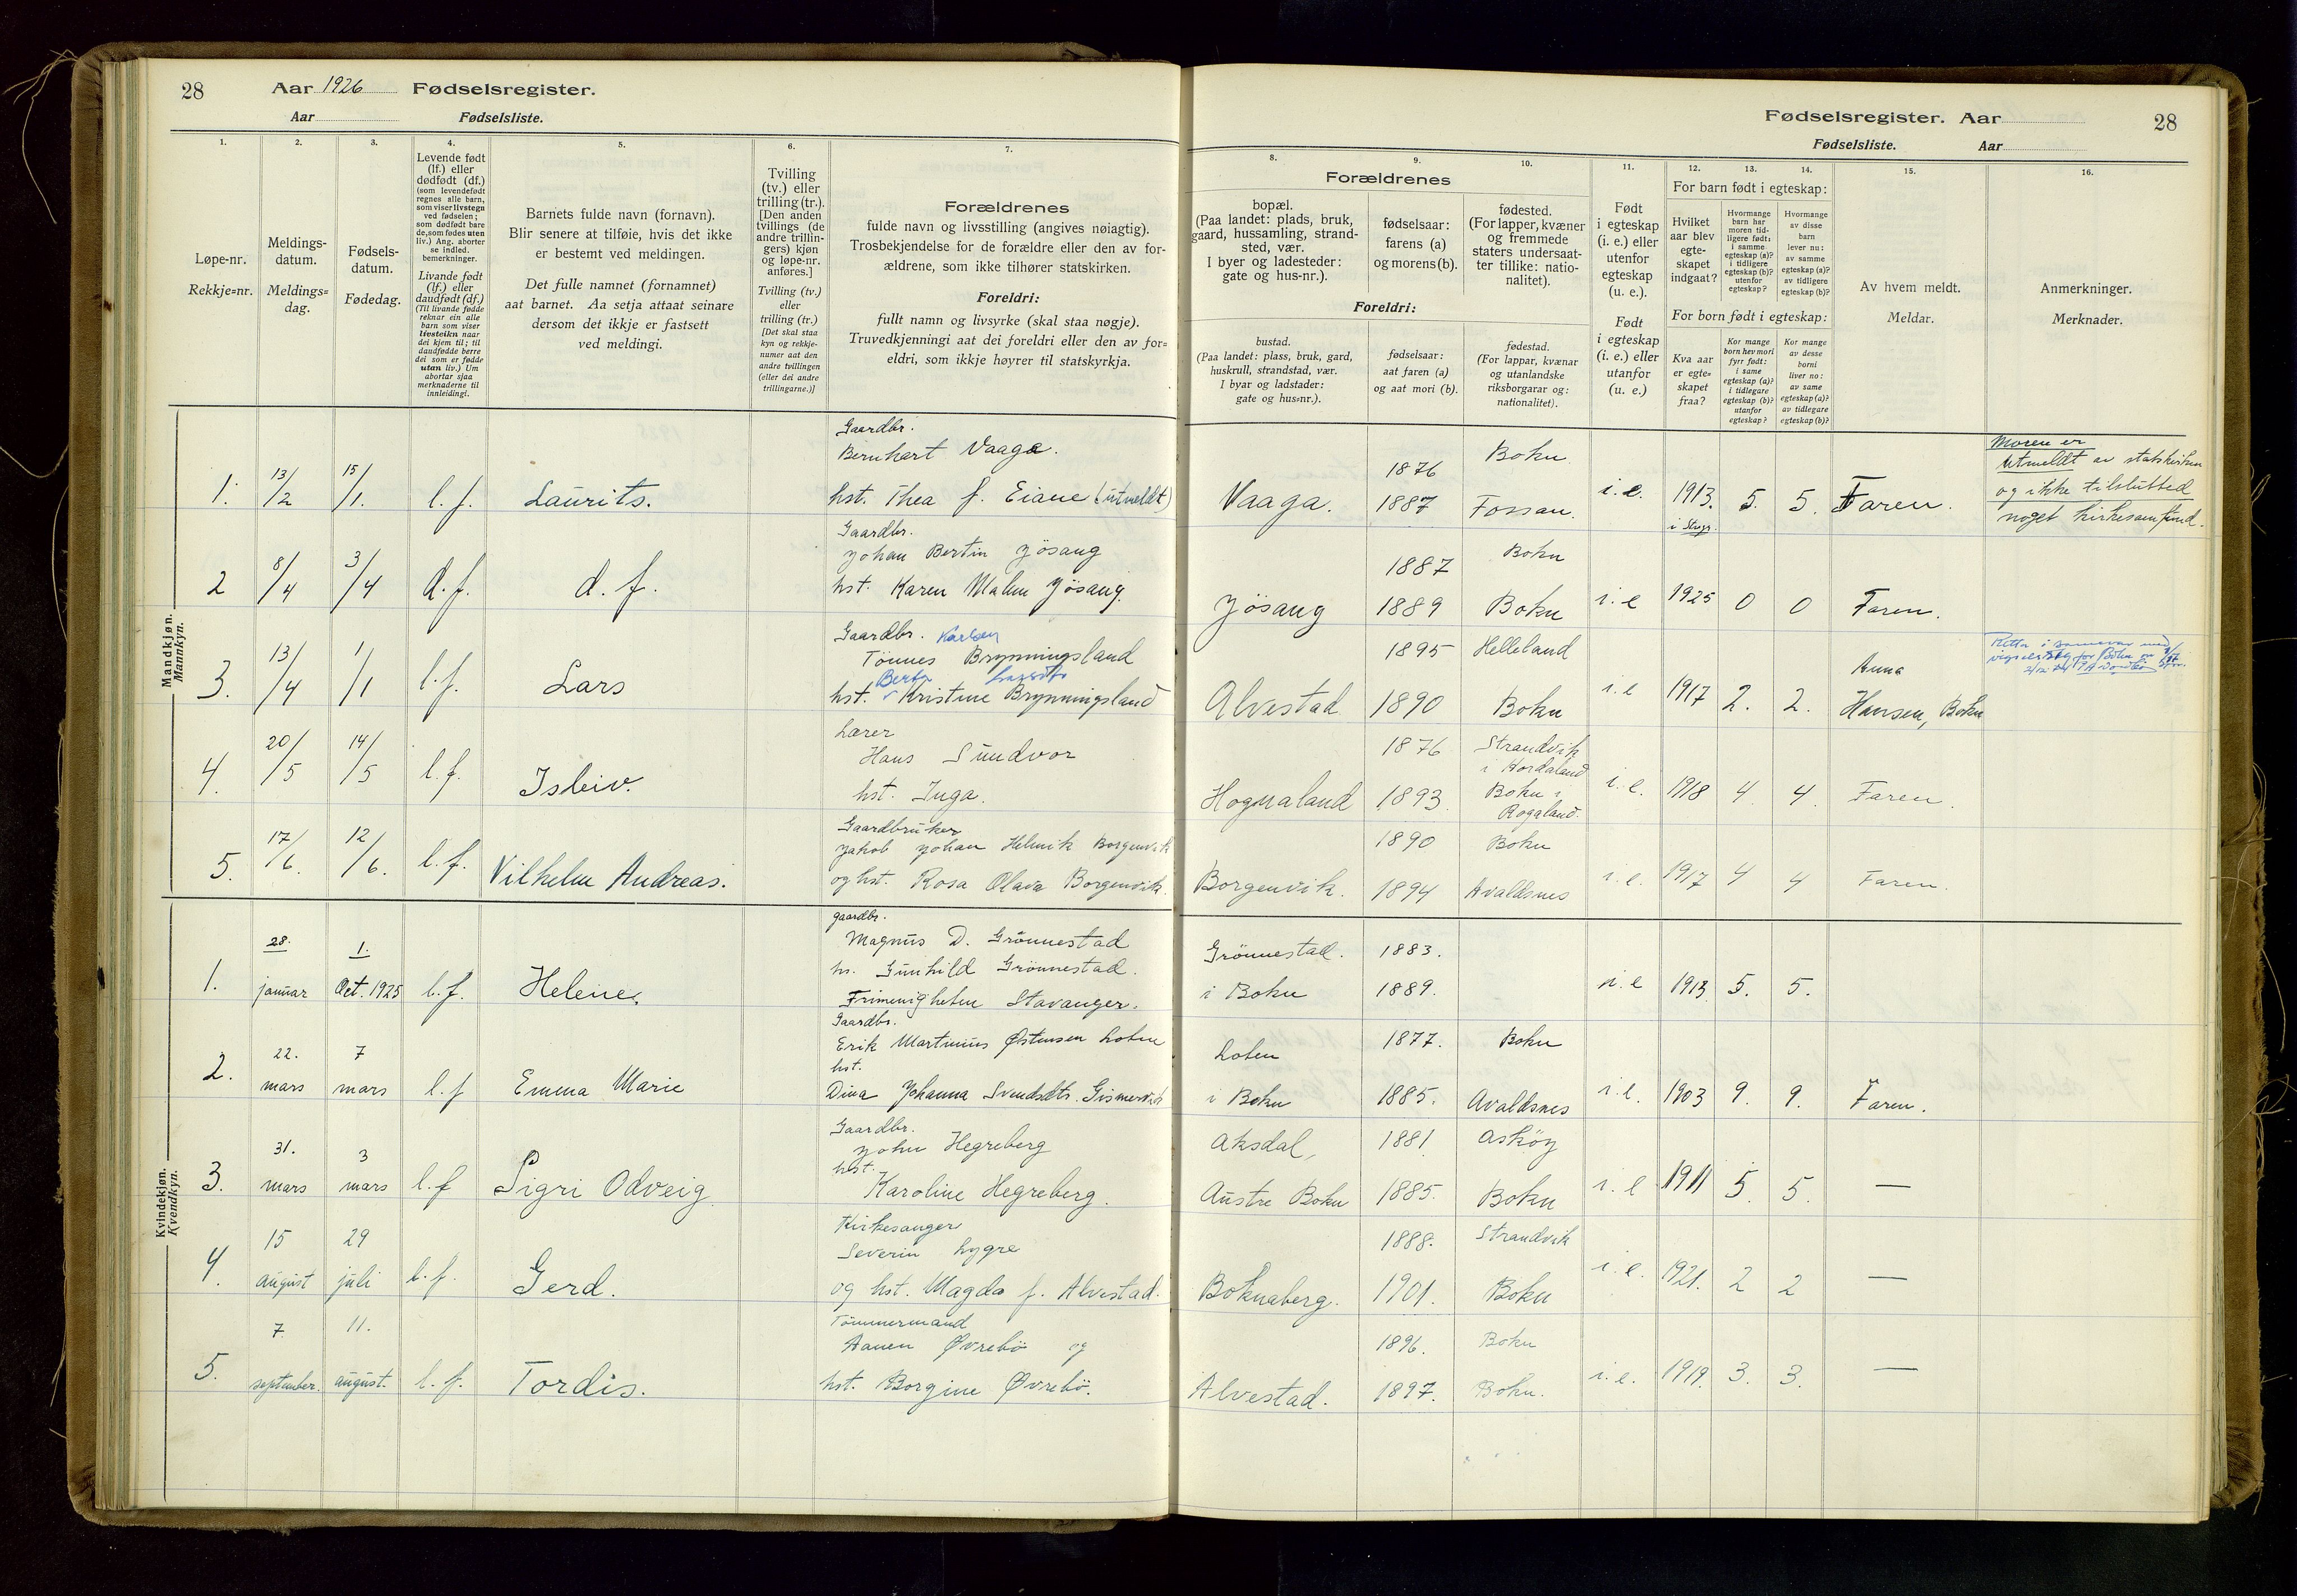 28 Aar 1926 Fødselsregister.
Aar Fødselsliste.
1. 2. 3. 4. 5. 6. 7.
Løpe-nr.
Rekkje=nr.
Meldings-
datum.
Meldings=
dag.
Fødsels-
datum.
Fødedag.
Levende født
(lf.) eller
dødfødt (df.)
(som levendefødt
regnes alle barn,
som viser livstegn
ved fødselen;
som dødfødt bare
de, som fødes uten
liv.) Ang. aborter
se indled.
bemerkninger.
Livande født
(lf.) eller
daudfødt (df.)
(Til livande fødde
reknar ein alle
barn som viser
livsteikn naar
dei kjem til; til
daudfødde berre
dei som er fødde
utan liv.) Um
abortar sjaa
merknaderne til
innleidingi.
Barnets fulde navn (fornavn).
Blir senere at tilføie, hvis det ikke
er bestemt ved meldingen.
Det fulle namnet (fornamnet)
aat barnet. Aa setja attaat seinare
dersom det ikkje er fastsett
ved meldingi.
Tvilling
(tv.) eller
trilling (tr.).
[Den anden
tvillings (de
andre trillin-
gers) kjøn
og løpe-nr.
anføres.]
Tvilling (tv.)
eller
trilling (tr.)
[Det skal staa
kyn og rekkje-
numer aat den
andre tvillingen
(eller dei andre
trillingarne.)]
Forældrenes
fulde navn og livsstilling (angives nøiagtig).
Trosbekjendelse for de forældre eller den av for-
ældrene, som ikke tilhører statskirken.
Foreldri:
fullt namn og livsyrke (skal staa nøgje).
Truvedkjenningi aat dei foreldri eller den av for=
eldri, som ikkje høyrer til statskyrkja.
Mandkjøn.
Mannkyn.
1. 13/2 15/1. l. f. Laurits.
Gaardbr.
Bernhart Vaaga.
hst. Thea f. Eiane (utmeldt)
2 8/4 3/4 d. f. d. f.
Gaardbr.
Johan Bertin Jösang
hst. Karen Malm Jösang.
3. 13/4 1/1 l. f. Lars
Gaardbr. Karlsen
Tönnes Brynningsland
Berta
hst. Kristine Brynningsland
4. 20/5 14/5 l. f. Isleiv.
Lærer
Hans Sundvor
hst. Inga.
5. 17/6. 12/6. l. f. Vilhelm Andreas.
Gaardbruker
Jakob Johan Helmik Borgenvik
og hst. Rosa Olava Borgenvik.
Kvindekjøn.
Kvendkyn.
1. 28. januar 1. Oct. 1925 l. f. Helene.
gaardbr.
Magnus D. Grönnestad
hs. Gunhild Grönnestad.
Frimenigheten Stavanger.
2. 22. mars 7 mars l. f Emma Marie
Gaardbr.
Erik Martinius Østensen Loten
hst.
Dina Johanna Svendsdtr. Gismervik
3. 31. mars 3 mars l. f Sigri Odveig
Gaardbr.
John Hegreberg
hst.
Karoline Hegreberg.
4. 15 august 29 juli l. f. Gerd.
Kirkesanger
Severin Lygre
og hst. Magda f. Alvestad.
5. 7. september. 11. august. l. f. Tordis.
Tömmermand
Aanen Øvrebö og
hst. Borgine Øvrebö.
Fødselsregister. Aar 28
Fødselsliste. Aar
8. 9. 10. 11. 12. 13. 14. 15. 16.
Forældrenes
bopæl.
(Paa landet: plads, bruk,
gaard, hussamling, strand-
sted, vær.
I byer og ladesteder:
gate og hus-nr.).
fødselsaar:
farens (a)
og morens (b).
fødested.
(For lapper, kvæner
og fremmede
staters undersaat-
ter tillike: natio-
nalitet).
Foreldri:
bustad.
(Paa landet: plass, bruk, gard,
huskrull, strandstad, vær.
I byar og ladstader:
gate og hus=nr.).
fødselsaar:
aat faren (a)
og aat mori (b).
fødestad.
(For lappar, kvænar
og utanlandske
riksborgarar og:
nationalitet).
Født
i egteskap
(i. e.) eller
utenfor
egteskap
(u. e.).
Født
i egteskap
(i. e.) eller
utanfor
(u. e.)
For barn født i egteskap:
Hvilket
aar blev
egte-
skapet
indgaat?
Hvormange
barn har
moren tid-
ligere født:
i samme
egteskap (a)?
i tidligere
egteskap (b)?
utenfor
egteskap?
Hvormange
av disse
barn
lever nu:
av samme
egteskap (a)?
av tidligere
egteskap (b)?
For born født i egteskap:
Kva aar
er egte=
skapet
fraa?
Kor mange
born hev mori
fyrr født:
i same
egteskap (a)?
i tidlegare
egteskap (b)?
utanfor
egteskap?
Kor mange
av desse
borni
liver no:
av same
egteskap (a)?
av tidlegare
egteskap (b)?
Av hvem meldt.
Meldar.
Anmerkninger.
Merknader.
Vaaga. 1876 Bokn
1887 Fossan. i. e. 1913. 5. 5. Faren.
Moren er
utmeldt av statskirken
og ikke tilslutted
noget kirkesamfund.
1887 Bokn
Jösang 1889 Bokn i. e 1925 0 0 Faren.
1895 Helleland
Alvestad 1890 Bokn i. e 1917 2. 2. Anna
Hansen, Bokn
1876 Strandvik
i Hordaland
Hognaland 1893. Bokn i
Rogaland. i. e. 1918 4 4. Faren.
1890 Bokn
Borgenvik. 1894 Avaldsnes i. e. 1917 4 4 Faren.
Grönnestad. 1883.
i Bokn 1889. i. e 1913 5. 5.
Loten 1877. Bokn
i Bokn 1885. Avaldsnes i. e. 1903 9. 9. Faren.
Aksdal, 1881 Asköy
Austre Bokn 1885. Bokn i. e 1911 5. 5. —
1888. Strandvik
Boknaberg. 1901. Bokn i. e. 1921. 2 2 —
1896. Bokn
Alvestad. 1897. Bokn. i. e. 1919. 3. 3. —